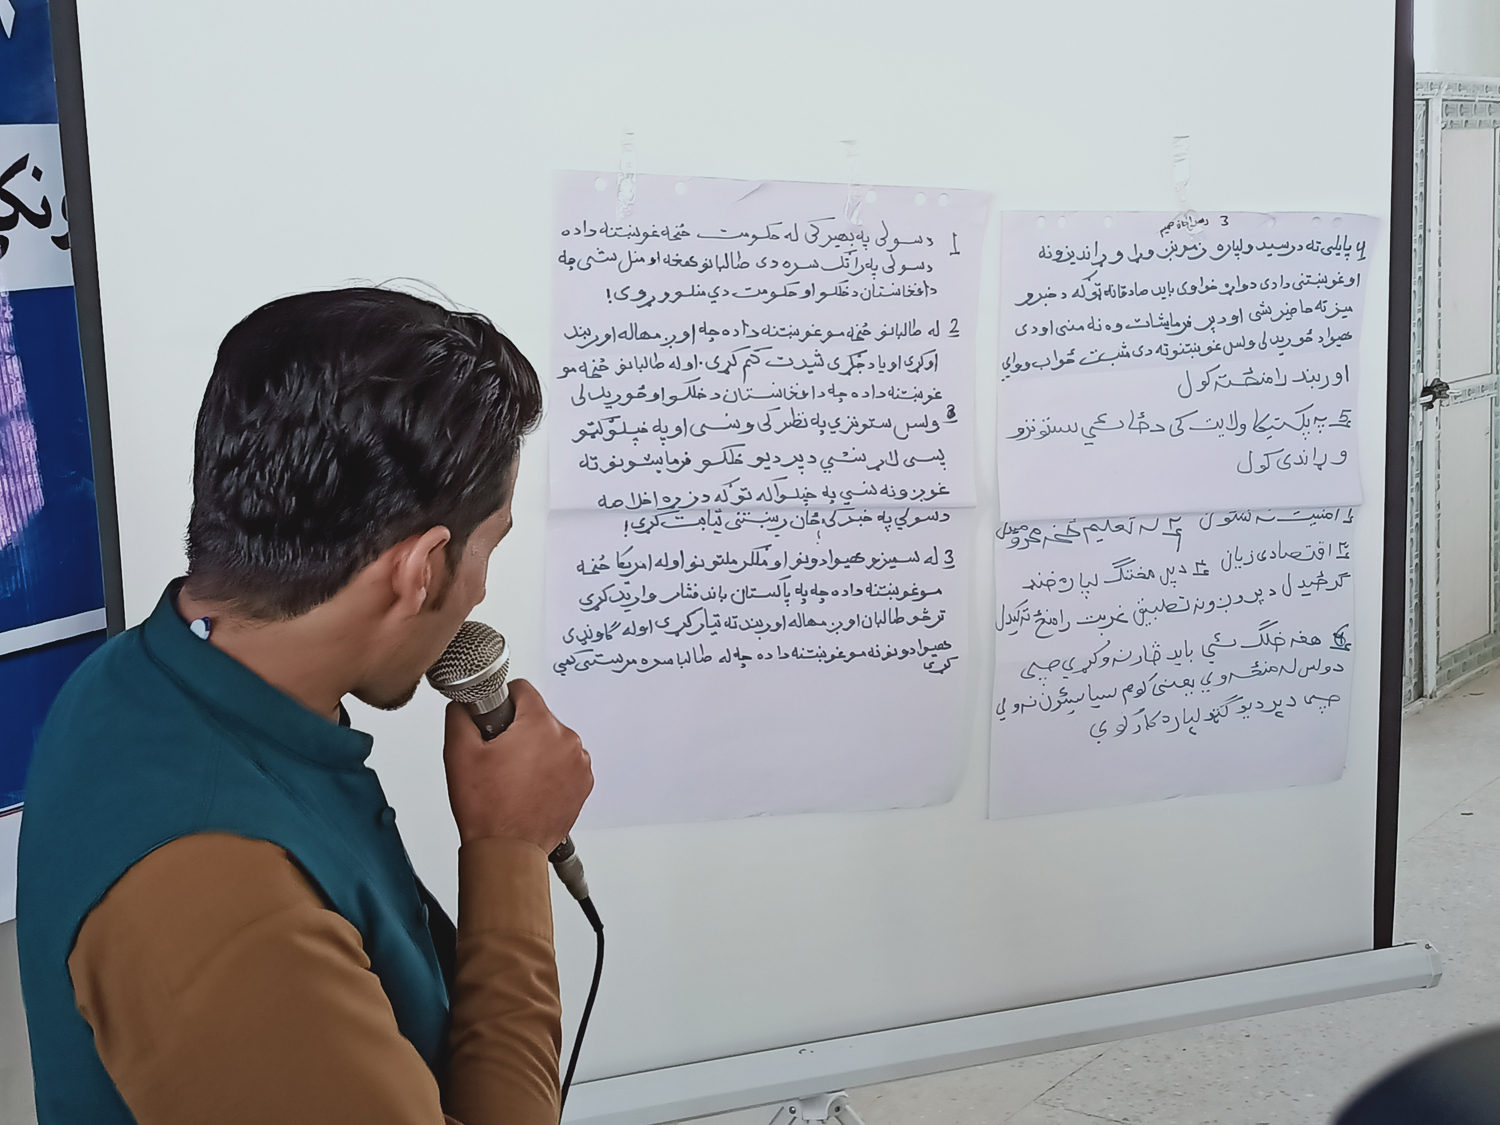 1 د سولی په بهیر کی له حکومت څخه غوښتنه داده
د سولی په راتگ سره دی طالبانو هغه او منل شی چه
د افغانستان د خلکو او حکومت دي منلو وړ وی!
2 له طالبانو څخه مو غوښتنه داده چه اوږ مهاله اوربند
اوکړی او یا د جګړی شدت کم کړی. او له طالبانو څخه مو
غوښتنه داده چه د افغانستان د خلکو او ځوریدلی
ولس ستونزي په نظر کی ونسی او په خپلو کټو
پسی لاړ نشي د پردیو خلکو فرمایشونو ته
غوږ ونه نسي په خپلواکه توګه د زړه اخلاصه
د سولي په خبر کی ځان رښتنی ثابت کړی!
3 له سیزو هیوادونو او ملګر ملتونو او له امریکا څخه
مو غوښتنه داده چه په پاکستان باند فشار وارید کړی
ترڅو طالبان اوږ مهاله اوربند ته تیار کړی او له ګاونډی
هیوادونو نه مو غوښتنه داده چه له طالبا سره مرستی کمی
کړی
3
4 پایلی ته د رسید و لپاره زموږن وړ او وړاندیزونه
او غوښتنی دادی دواړه خواوی باید صادقانه توګه د خبرو
میز ته حاضر شی او د پر فرمایشات وه نه منی او دی
هیواد ځوریدلی ولس غوښتنو ته دی مثبت ځواب ووایي
اوربند رامنځته کول
5 په پکتیکا ولایت کی د ځائي ستونزو
وړاندی کول
1 امنیت نه شتون 2 له تعلیم څخه محرومیدل
3 اقتصادی زیان 4 دپر مختګ لپاره خنډ
ګرځیدل د پروژو نه تطبیق غربت رامنځ ته کیدل
هغه خلګ شي باید ځار نه وکړي چي
د ولس له منځه وي یعنی کوم سیاسیون نه وی
چی د پردیو ګټو لپاره کار کوي